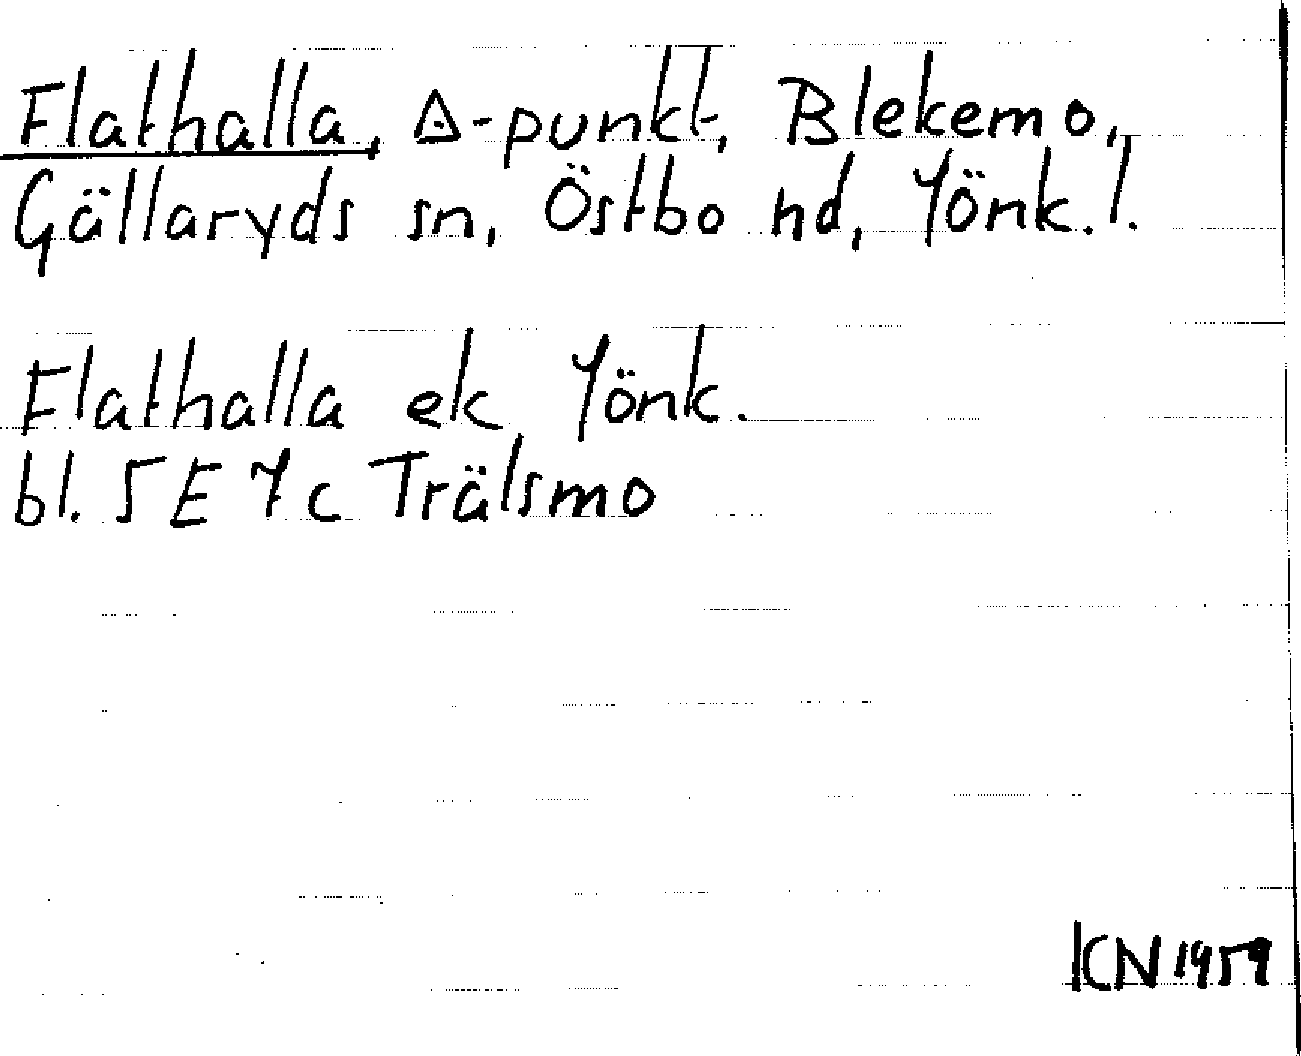 Flathalla, ◬-punkt, Blekemo,
Gällaryds sn, Östbo hd, Jönk. l.
Flathalla ek Jönk.
bl. 5 E 7 c Trälsmo
KN 1959